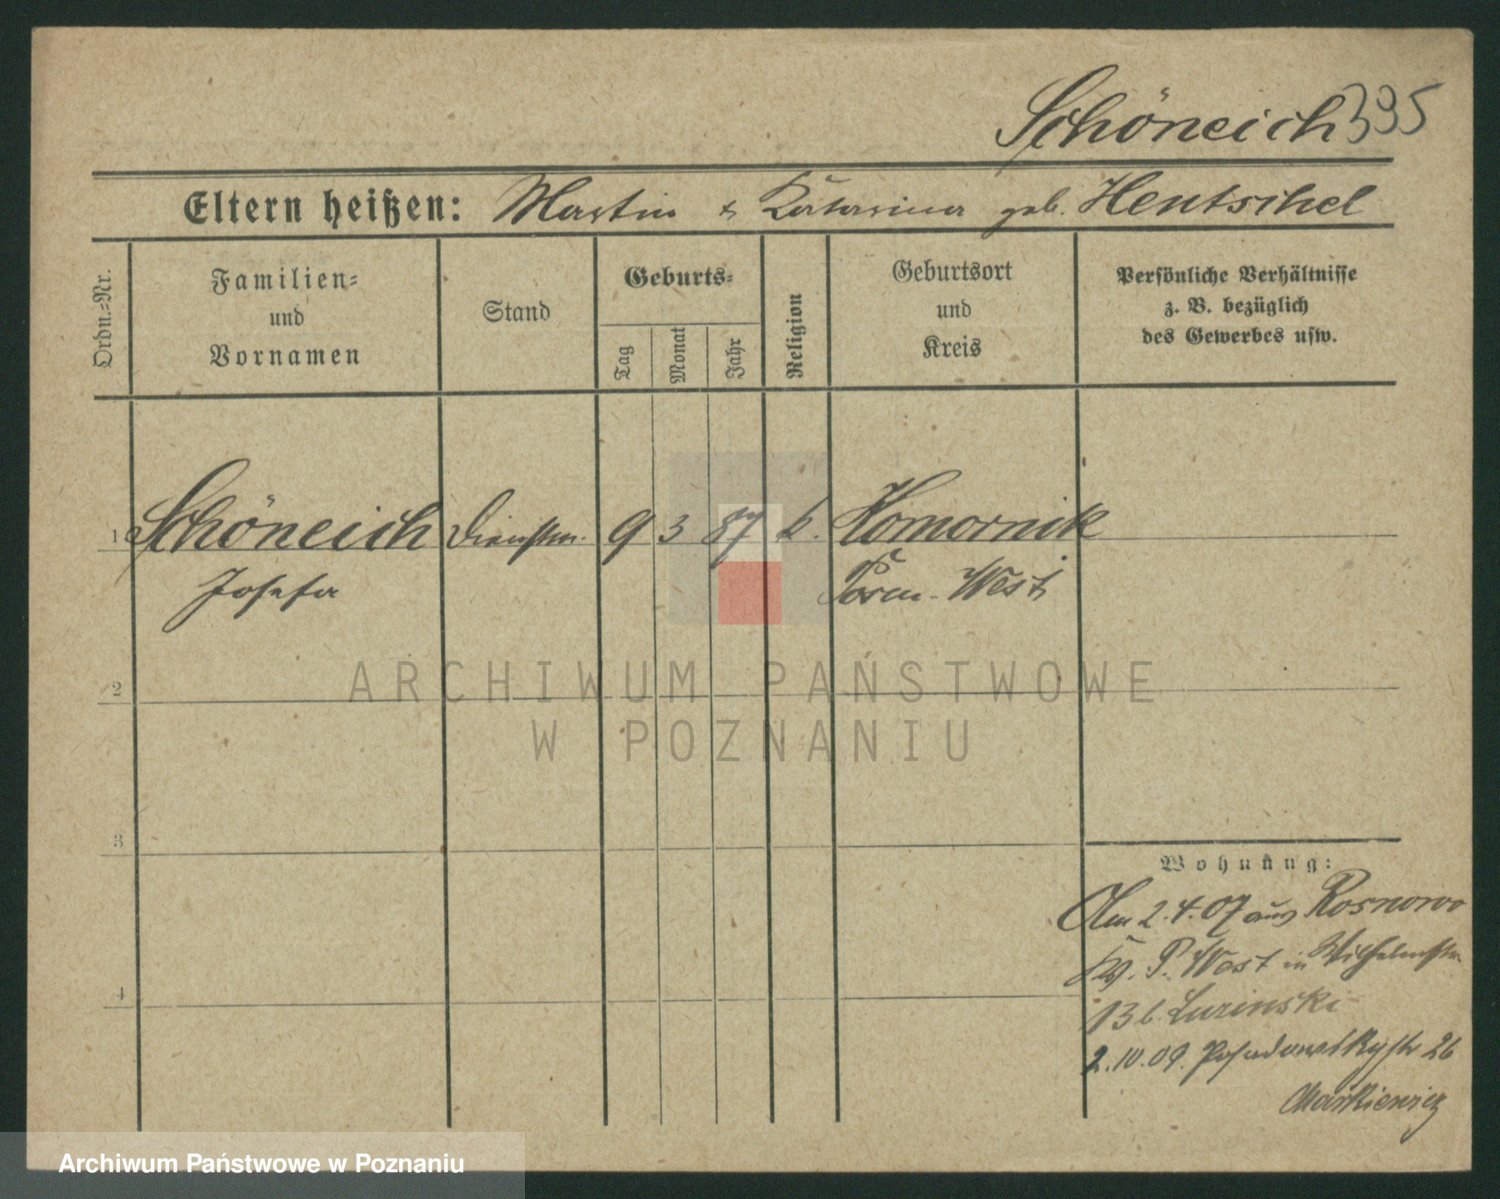 Schöneich 395
Eltern heißen: Martin & Katarina geb. Hentschel
Ordn.=Nr.
Familien=
und
Vornamen
Stand
Geburts=
Tag
Monat
Jahr
Religion
Geburtsort
und
Kreis
Persönliche Verhältnisse
z. B. bezüglich
des Gewerbes usw.
1 Schöneich Dienstm. 9 3 87 k. Komornik
Josefa Posen-West
2
ARCHIWUM PAŃSTWOWE
W POZNANIU
3
Wohnung:
Am 2.4.07 aus Rosnowo
Kr. P. West in Wilhelmstr
13 b. Lurinski
4
2.10.09. Posadowskystr 26
Markiewicz
Archiwum Państwowe w Poznaniu